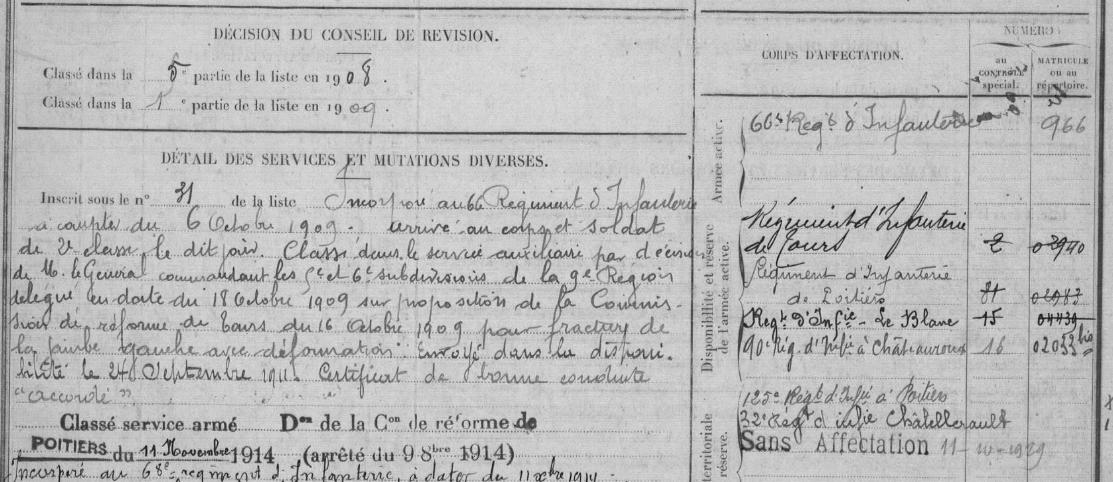 DÉCISION DU CONSEIL DE REVISION.
Classé dans la 5e partie de la liste en 1908.
Classé dans la 1e partie de la liste en 1909.
DÉTAIL DES SERVICES ET MUTATIONS DIVERSES.
Inscrit sous le n° 31 de la liste Incorporé au 66 Régiment d'Infanterie
à compter du 6 Octobre 1909. Arrivé au corps et soldat
de 2e classe le dit jour. Classé dans le service auxiliaire par décision
de M. le Général commandant les 5e et 6e subdivisions de la 9e Région
délégué en date du 18 Octobre 1909 sur proposition de la Commis-
sion de réforme de Tours du 16 Octobre 1909 pour fracture de
la jambe gauche avec déformation. Envoyé dans la disponi-
bilité le 24 Septembre 1911. Certificat de bonne conduite
"accordé"
Classé service armé Don de la Con de réforme de
POITIERS du 11 Novembre 1914 (arrêté du 9 8bre 1914)
Incorporé au 68e régiment d'Infanterie, à dater du 11 xbre 1914.
CORPS D'AFFECTATION.
NUMÉRO
au CONTROLE spécial.
MATRICULE ou au répertoire.
Armée active.
66e Regt d'Infanterie 966
Disponibilité et réserve de l'armée active.
Régiment d'Infanterie
de Tours 2
Régiment d'Infanterie
de Poitiers 81
Regt d'Infie - Le Blanc 15
90e Rég. d'Infie à Châteauroux 16 02033 bis
territoriale
réserve.
125e Regt d'Infie à Poitiers
32e Régt d'infie Châtellerault
Sans Affectation